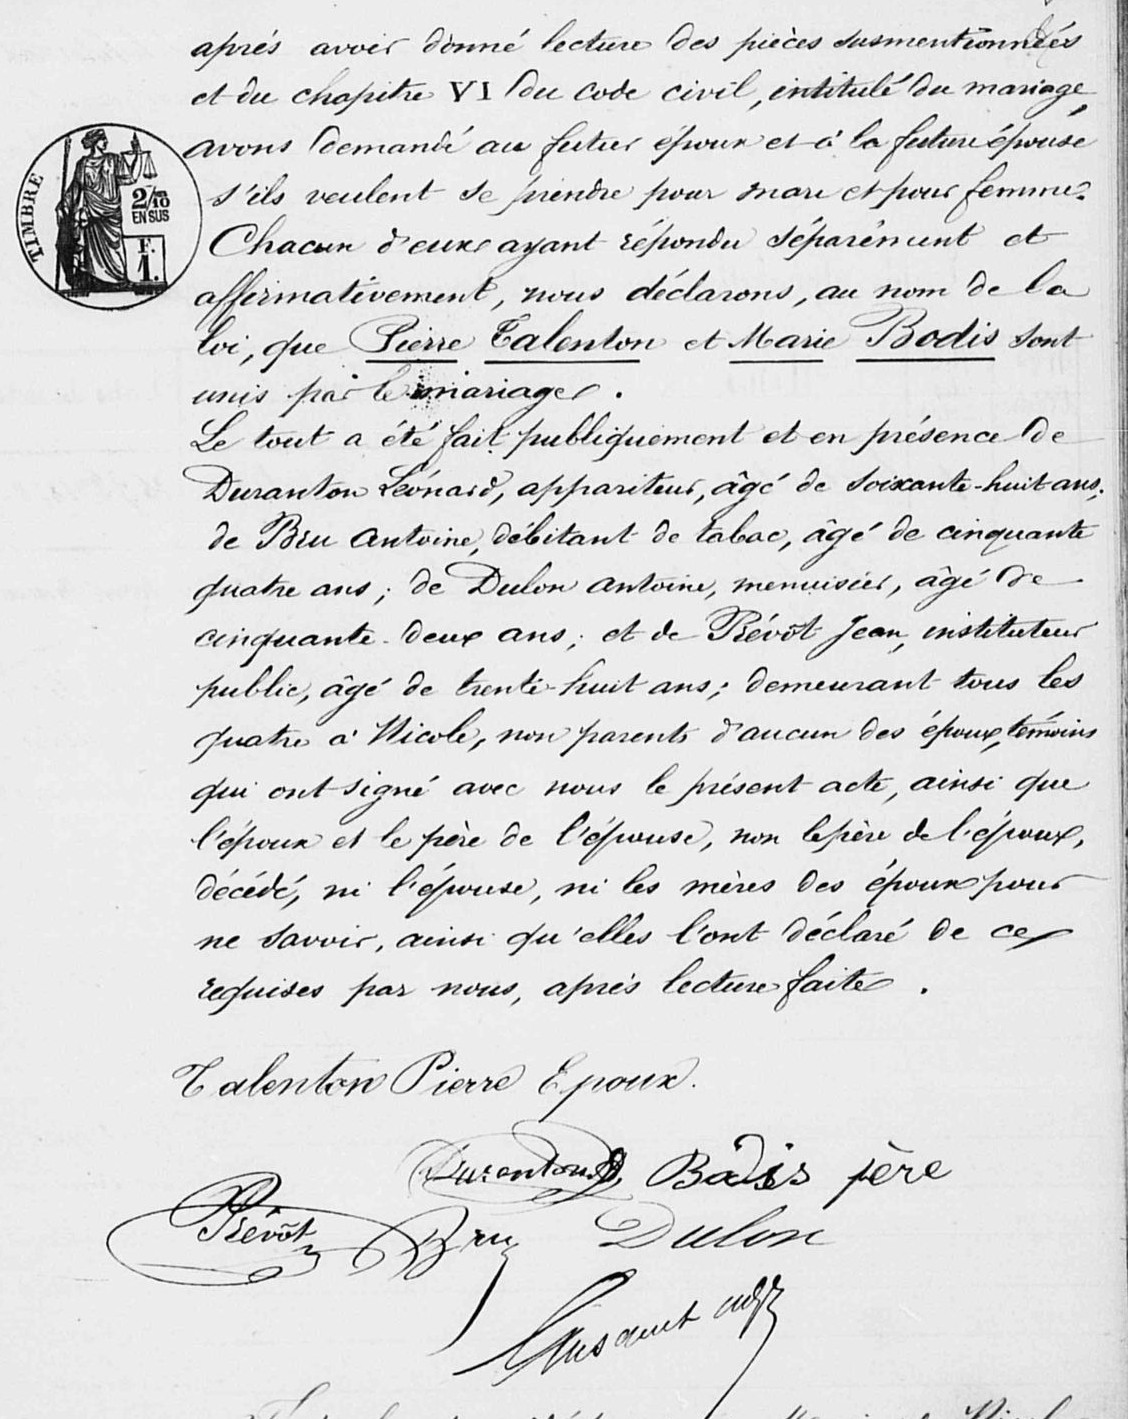 après avoir donné lecture des pièces susmentionnées
et du chapitre VI du code civil, intitulé du mariage,
avons demandé au futur époux et à la future épouse
s'ils veulent se prendre pour mari et pour femme.
Chacun d'eux ayant répondu séparément et
affirmativement, nous déclarons, au nom de la
loi, que Pierre Talenton et Marie Bodis sont
unis par le mariage.
Le tout a été fait publiquement et en présence de
Duranton Léonard, appariteur, âgé de soixante-huit ans;
de Bru Antoine, débitant de tabac, âgé de cinquante
quatre ans; de Dulon Antoine, menuisier, âgé de
cinquante-deux ans; et de Prévôt Jean, instituteur
public, âgé de trente-huit ans; demeurant tous les
quatre à Nicole, non parents d'aucun des époux, témoins
qui ont signé avec nous le présent acte, ainsi que
l'époux et le père de l'épouse, non le père de l'époux,
décédé, ni l'épouse, ni les mères des époux pour
ne savoir, ainsi qu'elles l'ont déclaré de ce
requises par nous, après lecture faite.
TIMBRE
2/10
EN SUS
F.
1.
Talenton Pierre Epoux.
Duranton Bodis père
Prévôt Bru Dulon